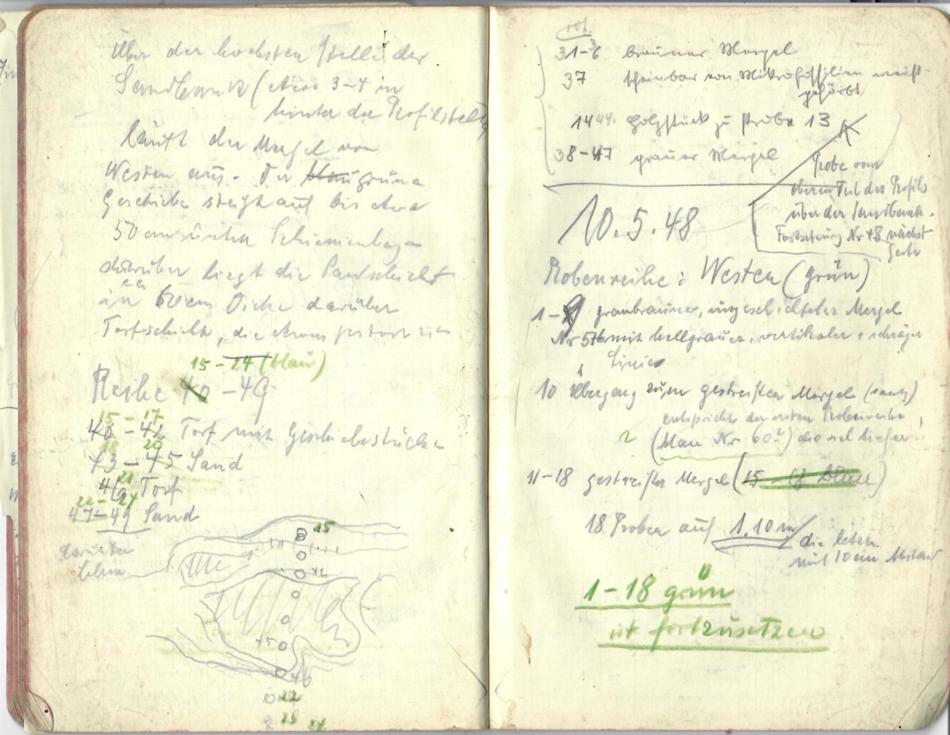 Über der höchsten Stelle der
Sandbank (etwa 3-4 m
hinter der Profilstelle
läuft der Mergel von
Westen aus. Der blau grüne
Geschiebe steigt auf bis etwa
50 cm
darüber liegt die Sandschicht
in ca 60 cm Dicke darüber
Torfschicht, die etwas gestört ist
15-24 (blau)
Reihe 40-49
15-17
40-42 Torf mit Geschiebestücken
18 20
43-45 Sand
21
46 Torf
22-24
47-49 Sand
darunter
Lehm
15
42
45
46
22
23
24
rot
31-36 brauner Mergel
37 scheinbar von Mikrofossilien
gefärbt
14 Holzstück zu Probe 13
38-47 grauer Mergel
Probe vom
oberen Teil des Profils
über der Sandbank.
Fortsetzung Nr 48 nächst
Seite
10.5.48
Probenreihe: Westen (grün)
1-9 graubrauner, ungeschichteter Mergel
Nr 5+6 mit hellgrauer, vertikaler + schräger
Linie
10 Übergang zum gestreiften Mergel
entspricht der ersten Probenreihe
? (blau Nr 60?) die viel tiefer
11-18 gestreifter Mergel (15 blau)
18 Proben auf 1.10 m
die letzten
mit 10 cm Abstand
1-18 grün
ist fortzusetzen